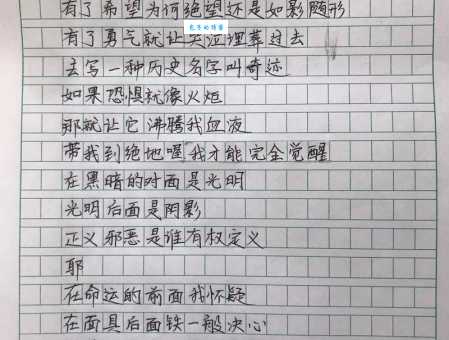 有了希望为何绝望还是如影随形
有了勇气就让哭泣埋葬过去
去写一种历史名字叫奇迹
如果恐惧就像火炬
那就让它沸腾我血液
带我到绝地喔我才能完全觉醒
在黑暗的对面是光明
光明后面是阴影
正义邪恶是谁有权定义
耶
在命运的前面我怀疑
在面具后面铁一般决心